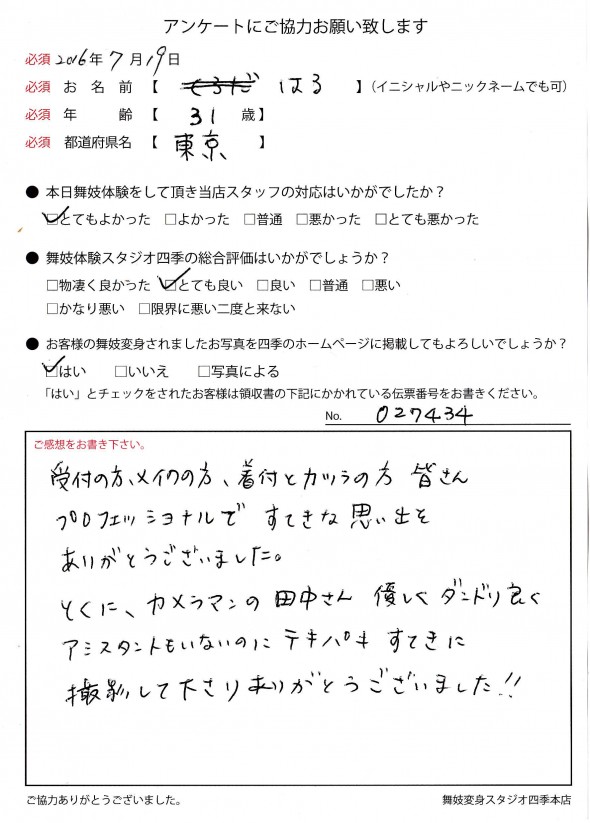 アンケートにご協力お願い致します
必須 2016年7月19日
必須 お名前【 はる 】(イニシャルやニックネームでも可)
必須 年齢【 31 歳】
必須 都道府県名【 東京 】
● 本日舞妓体験をして頂き当店スタッフの対応はいかがでしたか?
☑とてもよかった □よかった □普通 □悪かった □とても悪かった
● 舞妓体験スタジオ四季の総合評価はいかがでしょうか?
□物凄く良かった ☑とても良い □良い □普通 □悪い
□かなり悪い □限界に悪い二度と来ない
● お客様の舞妓変身されましたお写真を四季のホームページに掲載してもよろしいでしょうか?
☑はい □いいえ □写真による
「はい」とチェックをされたお客様は領収書の下記にかかれている伝票番号をお書きください。
No. 027434
ご感想をお書き下さい。
受付の方、メイクの方、着付とカツラの方 皆さん
プロフェッショナルで すてきな思い出を
ありがとうございました。
とくに、カメラマンの田中さん 優しく ダンドリ良く
アシスタントもいないのに テキパキ すてきに
撮影して下さりありがとうございました!!
ご協力ありがとうございました。
舞妓変身スタジオ四季本店